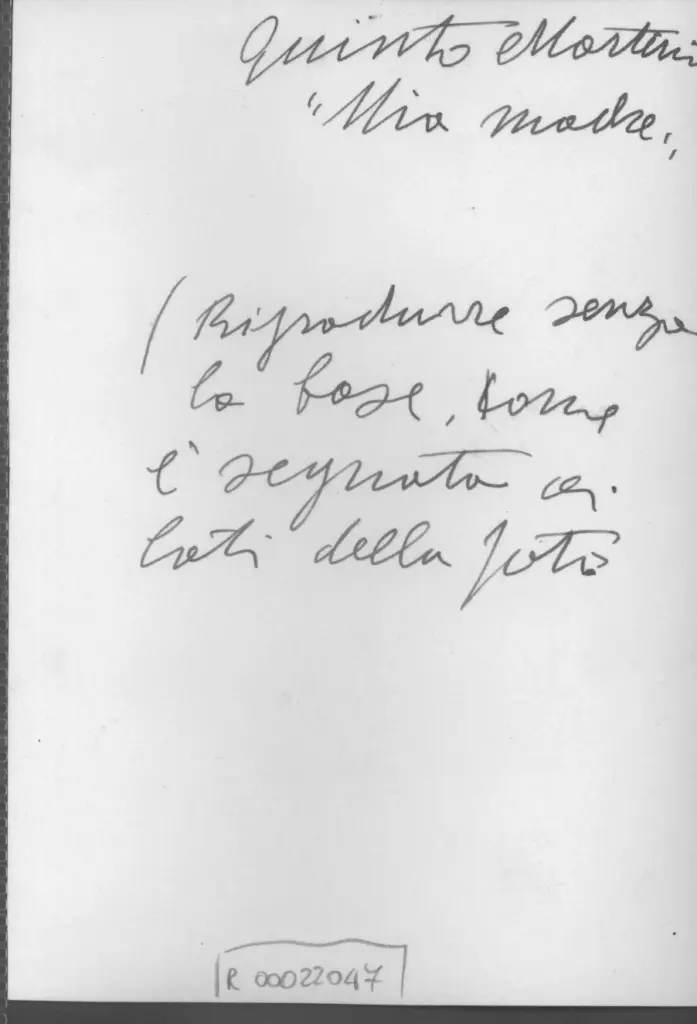 Quinto Martini
"Mia madre„
(Riprodurre senza
la base, come
è segnata ai
lati della foto
R 00022047